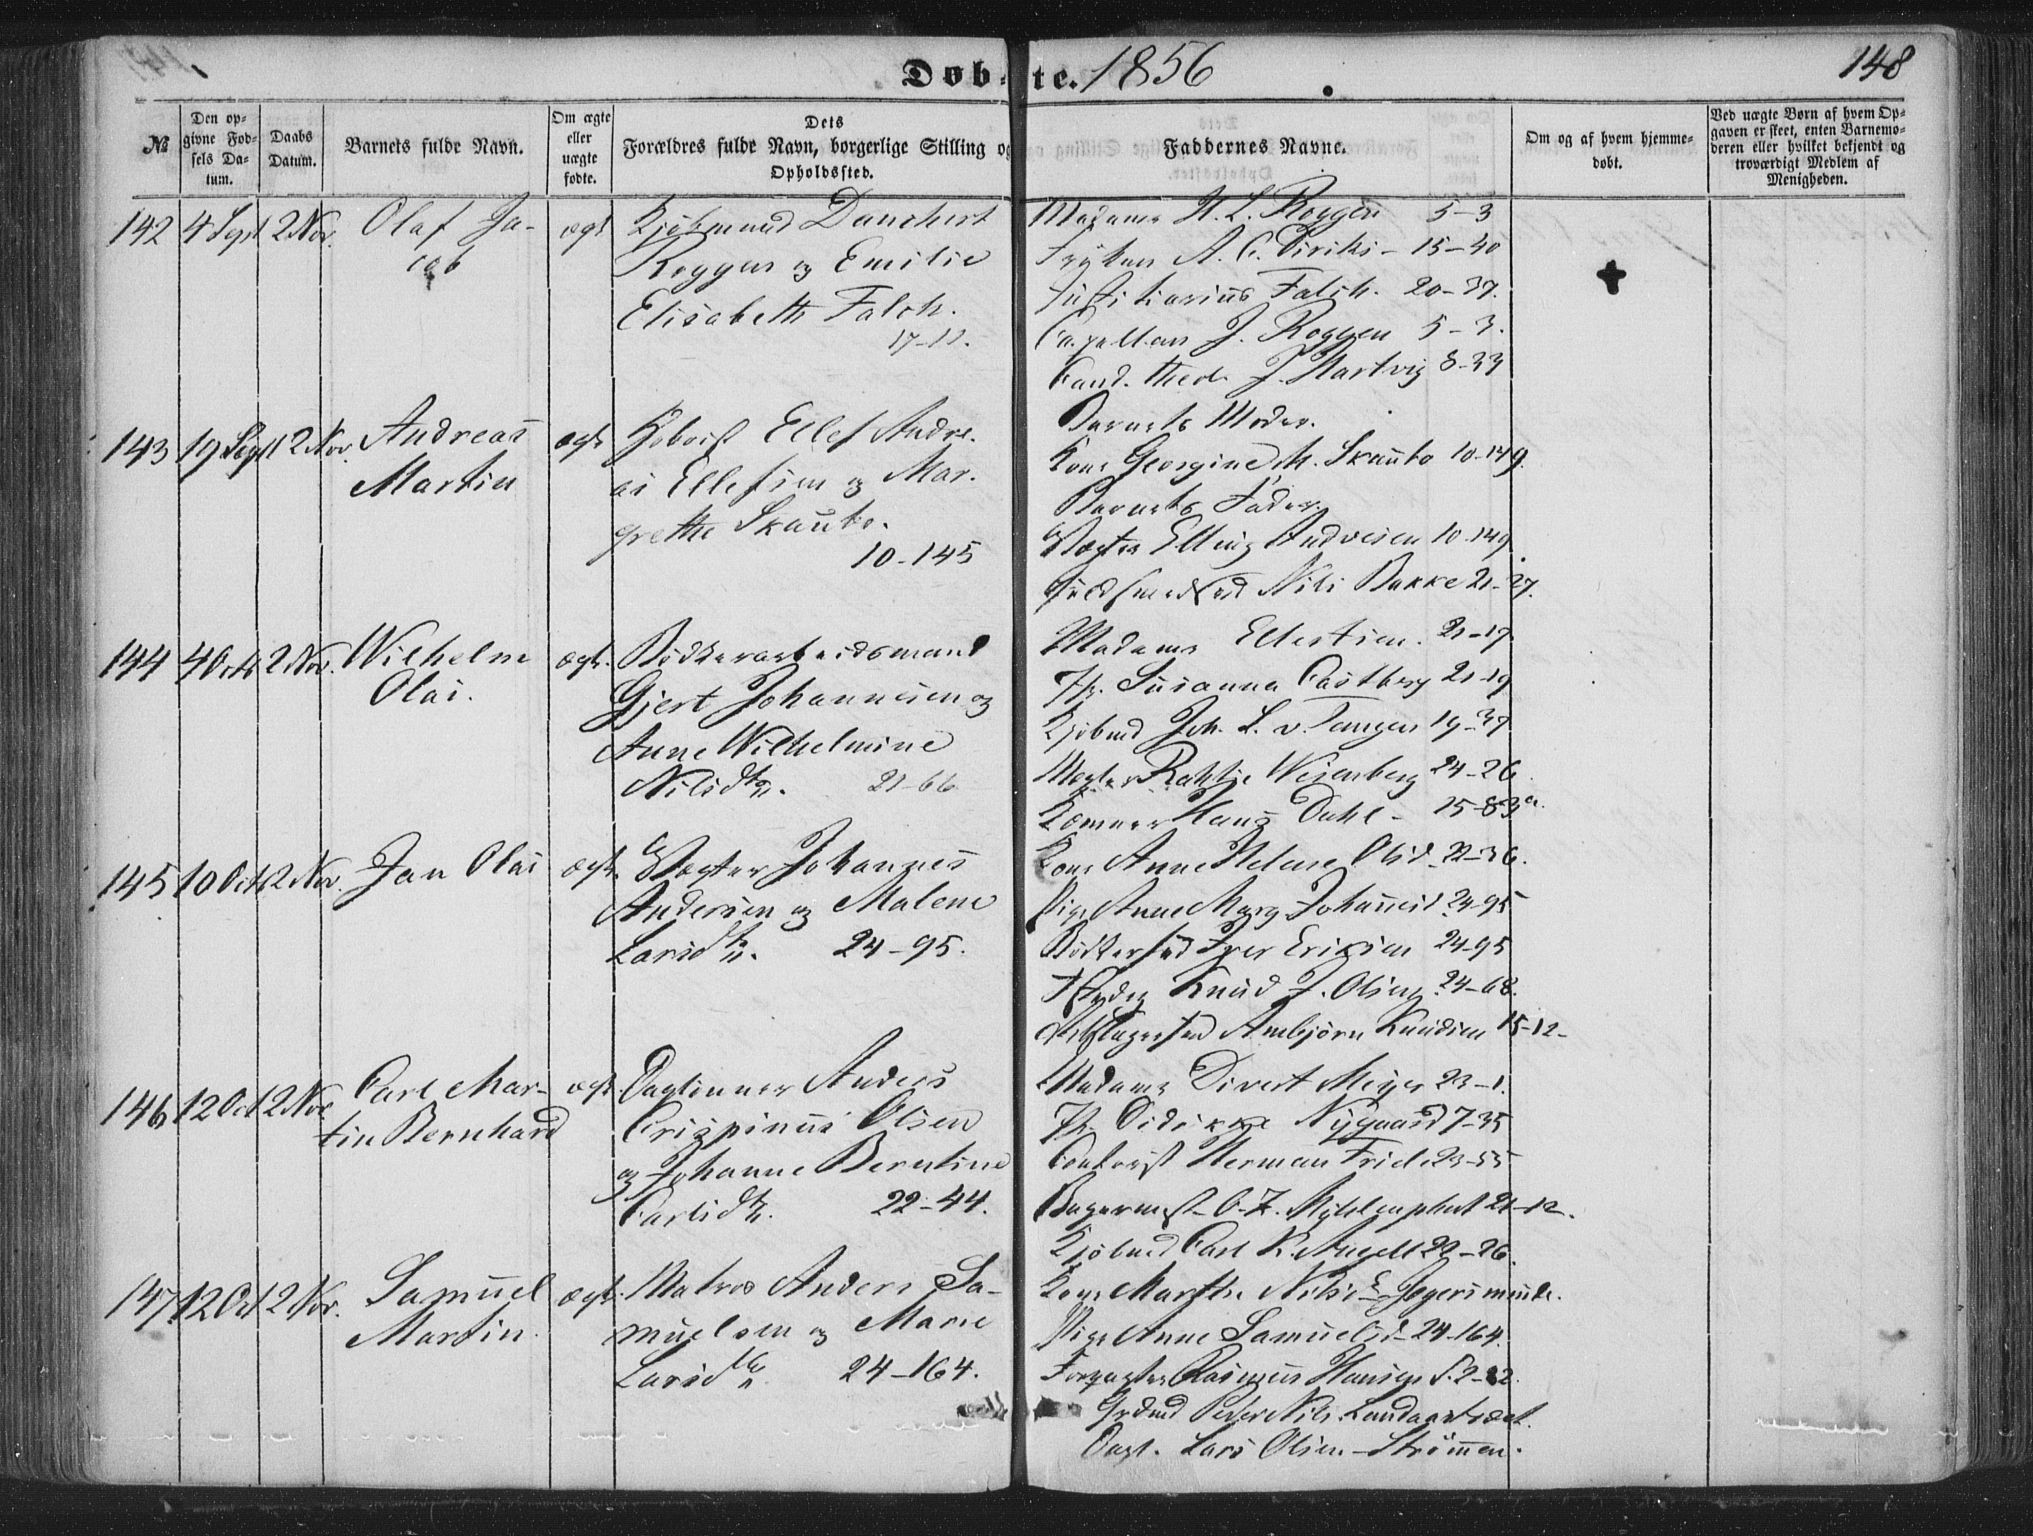 Døbte. 1856
148
№
Den opgivne Fødsels Datum.
Daabs Datum.
Barnets fulde Navn.
Om ægte eller uægte fødte.
Dets Forældres fulde Navn, borgerlige Stilling og Opholdssted.
Faddernes Navne.
Om og af hvem hjemmedøbt.
Ved uægte Børn af hvem Opgaven er skeet, enten Barnemoderen eller hvilket bekjendt og troværdigt Medlem af Menigheden.
142 4 Sept 2 Nov. Olaf Ja-
cob
ægt
Kjøbmand Danchert
Roggen og Emilie
Elisabeth Falch.
Madame H. L. Roggen 5-3
Frøken A. C. Diriks - 15-40
Justitiarius Falch. 20-37.
Capellan J. Roggen 5-3.
Cand. theol. J. Hartvig 8-33
143 19 Sept 2 Nov. Andreas
Martin
ægt
Ellef Andre-
as Ellefsen og Mar-
grethe Skauebo.
10-145
Barnets Moder.
Kone Georgine M. Skauebo 10-149.
Barnets Fader.
Vægter Elling Andresen 10-149
Guldsmedsvd Nils Bakke 21-27.
144 4 Octb 2 Nov. Wilhelm
Olai.
ægt.
Bødkerarbeidsmand
Gjert Johannesen og
Anne Wilhelmine
Nilsdtr. 21-66
Madame Ellertsen. 21-17
Jfr. Susanna Castberg 21-19
Kjøbmd Joh. L. v. Tangen 19-37
Mægler Wesenberg 24-26.
Kæmner Hans Dahl - 15-83a.
145 10 Octb 2 Nov. Jan Olai
ægt.
Vægter Johannes
Andersen og Malene
Larsdtr. 24-95.
Kone Anne Helene Olsd. 22-36.
Pige Anne Marg Johannesd 24-95
Bødkersvd Iver Eriksen 24-95
Knud J. Olsen 24-68.
Ambjørn Knudsen 15-12-
146 12 Oct 2 Nov Carl Mar-
tin Bernhard
ægt.
Daglønner Anders
Crispinus Olsen
og Johanne Berntine
Carlsdtr. 22-44.
Madame Divert Meyer 23-1.
Jfr. Didrikke Nygaard 7-35
Contorist Herman Friele 23-55
Bagermest. C. Z. Myhlenphort 21-12.
Kjøbmd Carl K. Angell 22-26.
147 12 Oct 2 Nov. Samuel
Martin.
ægt.
Matros Anders Sa-
muelsen og Marie
Larsdtr. 24-164.
Kone Marthe Nilsd Jegersminde.
Pige Anne Samuelsd - 24-164.
Forpagter Rasmus Hansen S. 2-22.
Grdmd Peder Nils. Landaas
Dagl. Lars Olsen - Strømmen.